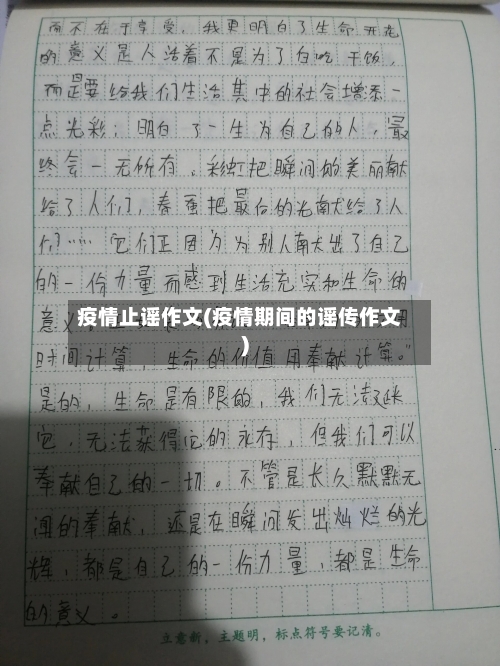 而不在于享受，我更明白了生命开花
的意义是人活着不是为了白吃干饭，
而是要给我们生活其中的社会增添一
点光彩；明白了一生为自己的人，最
终会一无所有。彩虹把瞬间的美丽献
给了人们，春蚕把最后的光献给了人
们……它们正因为为别人献出了自己
的一份力量而感到生活充实和生命的
意义
疫情止谣作文(疫情期间的谣传作文
)
时间计算，生命的价值用奉献计算。”
是的，生命是有限的，我们无法延长
它，无法获得它的永存，但我们可以
奉献自己的一切。不管是长久默默无
闻的奉献，还是在瞬间发出灿烂的光
辉，都是自己的一份力量，都是生命
的意义。
立意新，主题明，标点符号要记清。